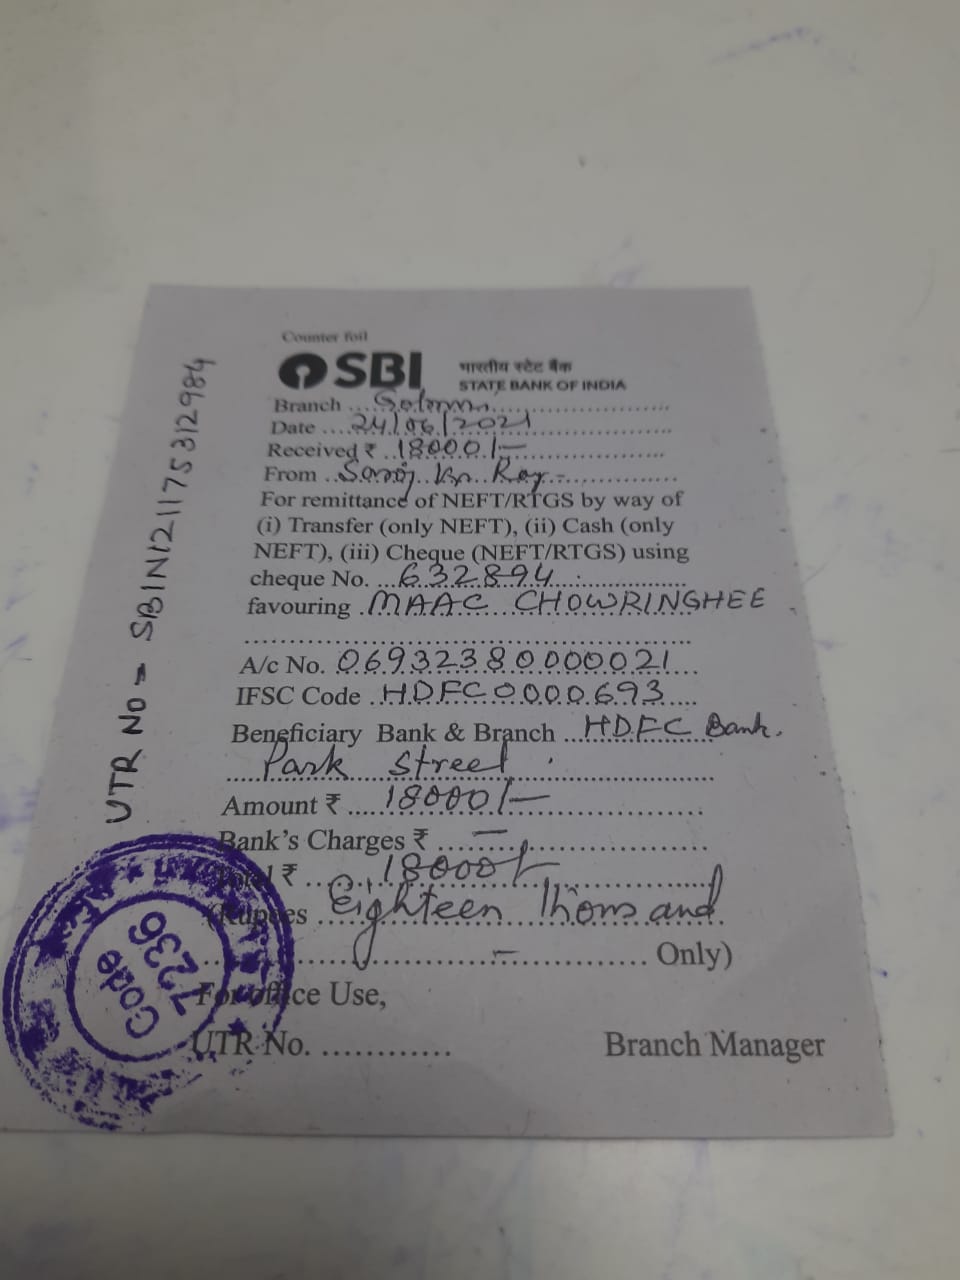 Counter foil
SBI भारतीय स्टेट बैंक
STATE BANK OF INDIA
Branch ....................
Date ....24/06/2021....................
Received ₹ ..18000/-....................
From ..Saroj Kr. Roy-....................
For remittance of NEFT/RTGS by way of
(i) Transfer (only NEFT), (ii) Cash (only
NEFT), (iii) Cheque (NEFT/RTGS) using
cheque No. ...632894....................
favouring .MAAC CHOWRINGHEE
....................
A/c No. 06932380000021...
IFSC Code ..HDFC0000693....
Beneficiary Bank & Branch ...HDFC Bank.
....Park Street....................
Amount ₹ ....18000/-....................
Bank's Charges ₹ ....—....................
Total ₹ ....18000/-....................
(Rupees ..Eighteen Thousand.
....................—.................... Only)
For office Use,
UTR No. ............
Branch Manager
UTR NO - SBIN121175312984
Code
7236